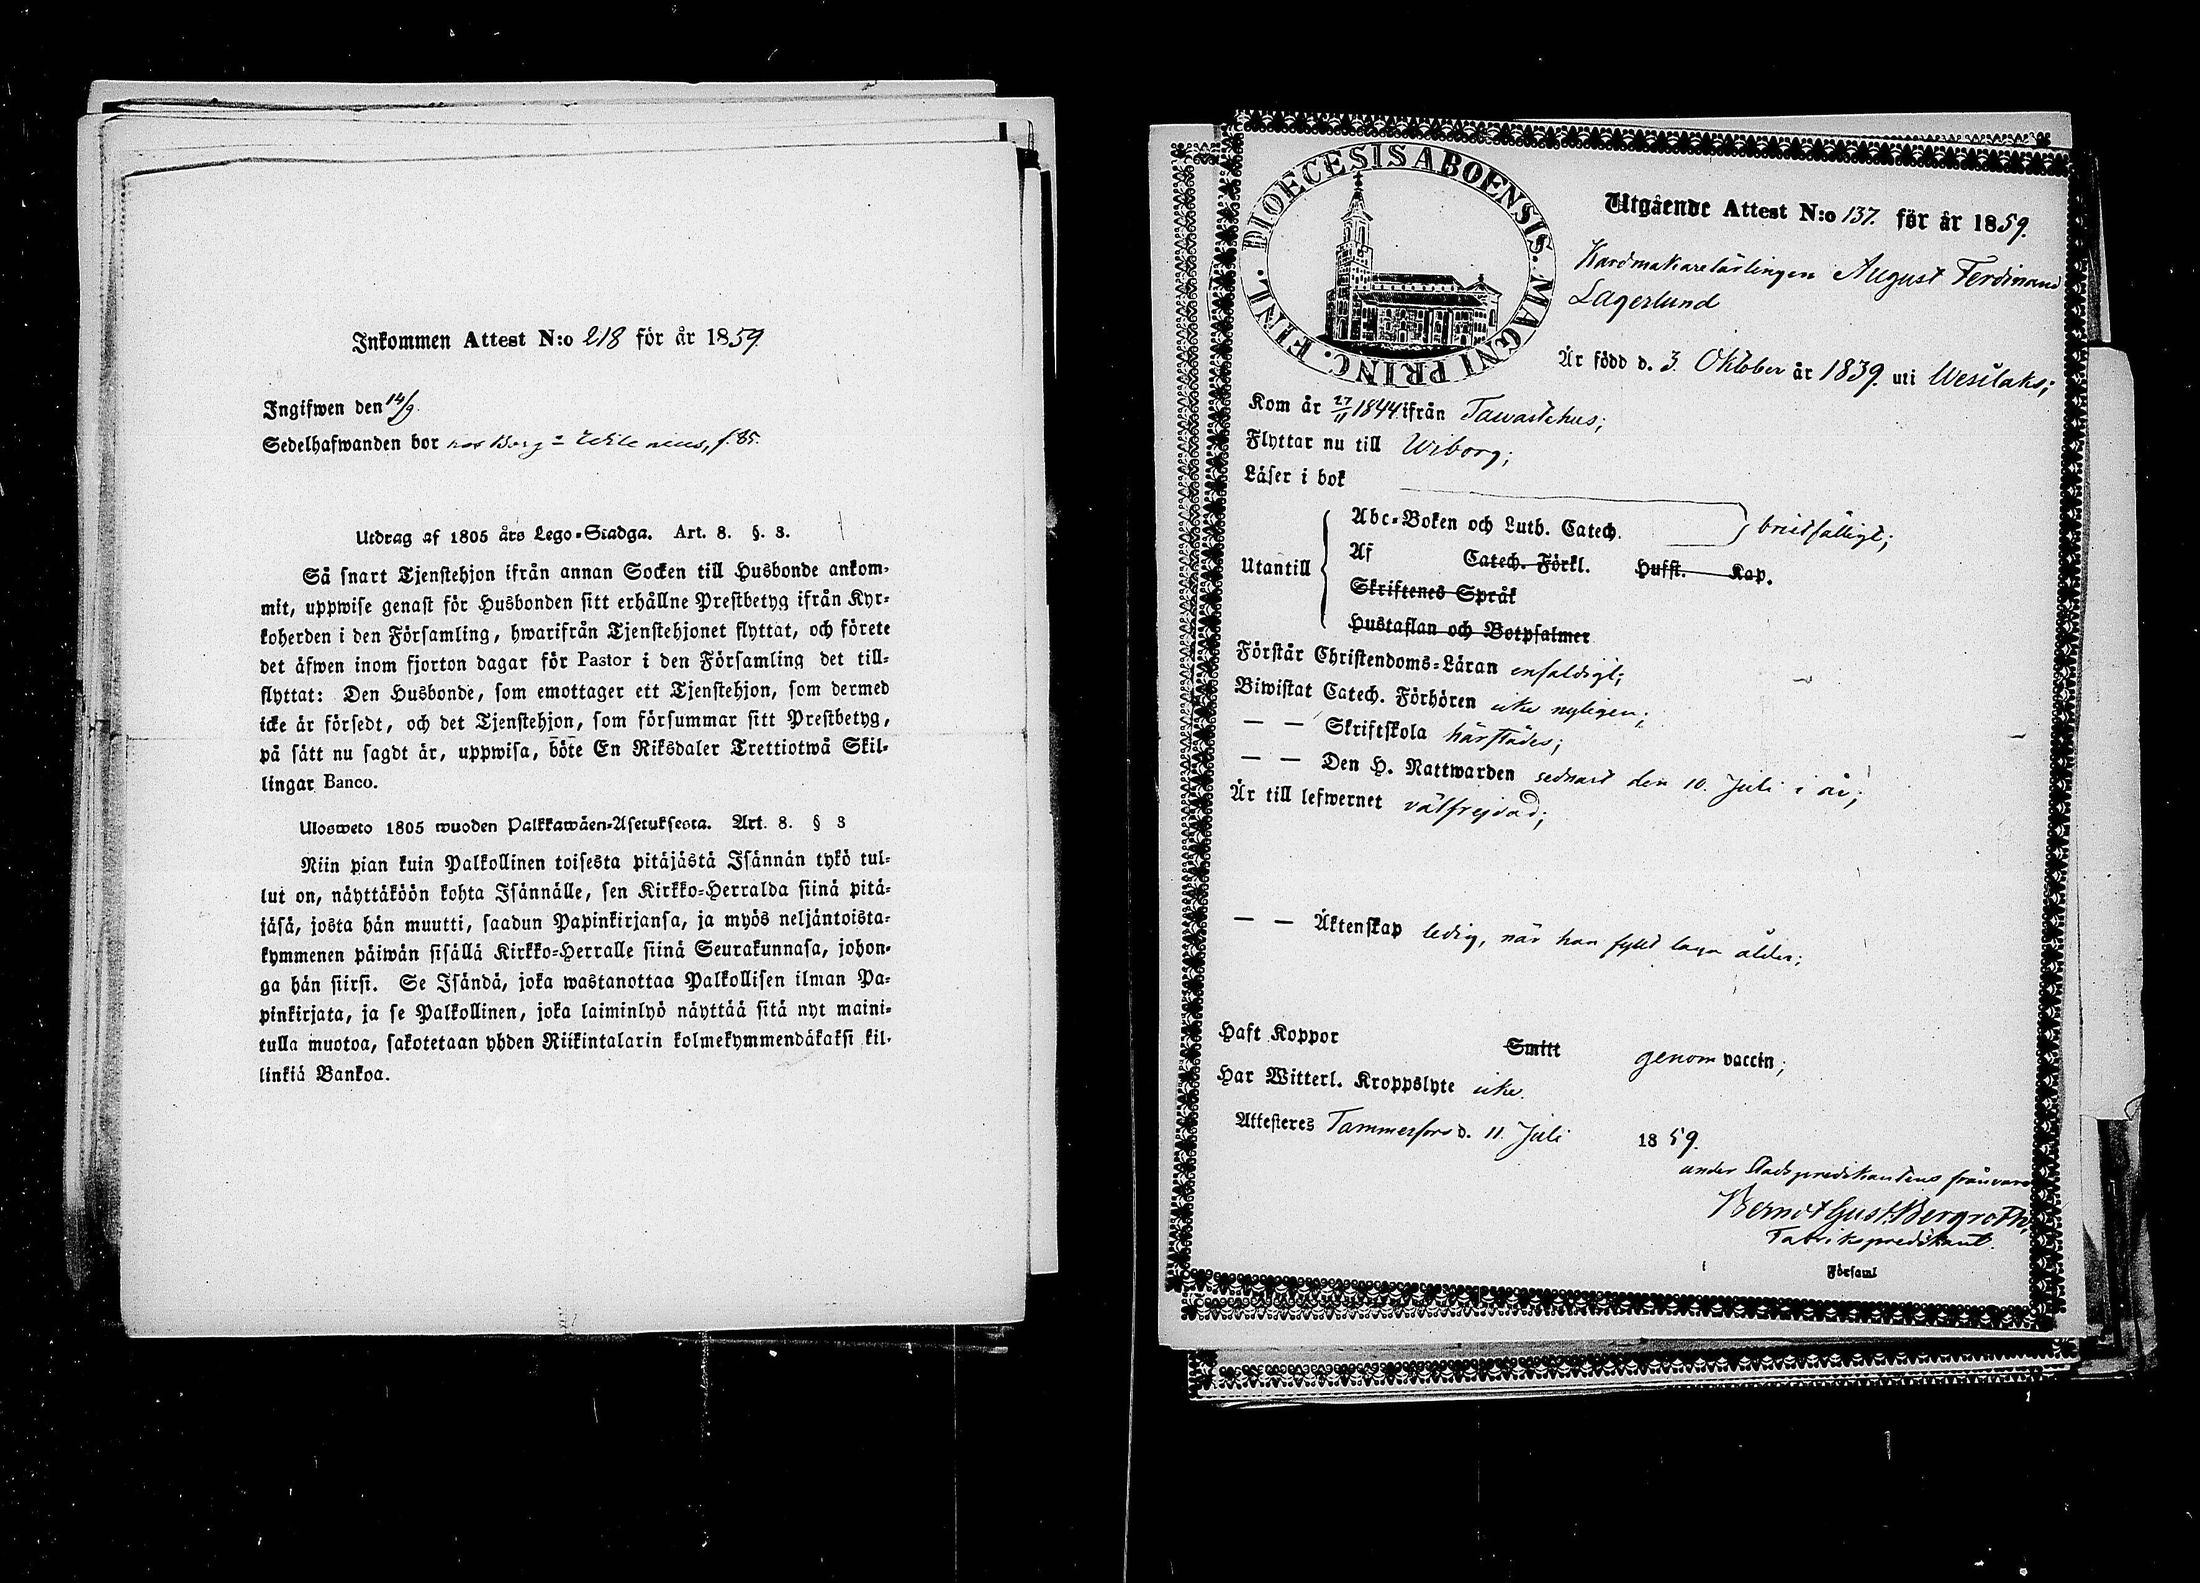 Inkommen Attest N:o 218 för år 1859
Ingifwen den 14/9.
Sedelhafwanden bor hos Borg
Utdrag af 1805 års Lego-Stadga. Art. 8. §. 3.
Så snart Tjenstehjon ifrån annan Socken till Husbonde ankom-
mit, uppwise genast för Husbonden sitt erhållne Prestbetyg ifrån Kyr-
koherden i den Församling, hwarifrån Tjenstehjonet flyttat, och förete
det äfwen inom fjorton dagar för Pastor i den Församling det till-
flyttat: Den Husbonde, som emottager ett Tjenstehjon, som dermed
icke är försedt, och det Tjenstehjon, som försummar sitt Prestbetyg,
på sätt nu sagdt är, uppwisa, böte En Riksdaler Trettiotwå Skil-
lingar Banco.
Ulosweto 1805 wuoden Palkkawäen-Asetuksesta. Art. 8. § 3
Niin pian kuin Palkollinen toisesta pitäjästä Isännän tykö tul-
lut on, näyttäköön kohta Isännälle, sen Kirkko-Herralda siinä pitä-
jäsä, josta hän muutti, saadun Papinkirjansa, ja myös neljäntoista-
kymmenen päiwän sisällä Kirkko-Herralle siinä Seurakunnasa, johon-
ga hän siirsi. Se Isändä, joka wastanottaa Palkollisen ilman Pa-
pinkirjata, ja se Palkollinen, joka laiminlyö näyttää sitä nyt maini-
tulla muotoa, sakotetaan yhden Riikintalarin kolmekymmendäkaksi kil-
linkiä Bankoa.
DIOECESIS ABOENSIS. MAGNI PRINC. FINL.
Utgående Attest N:o 137. för år 1859.
Kardmakarelärlingen August Ferdinand
Lagerlund
Är född d. 3 Oktober år 1839. uti Wesilaks;
Kom år 27/11 1844 ifrån Tawastehus;
Flyttar nu till Wiborg;
Läser i bok
Abc-Boken och Luth. Catech. bristfälligt;
Utantill
Af Catech. Förkl. Hufst. Kap.
Skriftenes Språk
Hustaflan och Botpsalmer
Förstår Christendoms-Läran enfaldigt;
Biwistat Catech. Förhören icke nyligen;
— — Skriftskola härstädes;
— — Den H. Nattwarden sednast den 10. Juli i år;
Är till lefwernet välfrejdad;
— — Äktenskap ledig, när han fyllt laga ålder;
Haft Koppor Smitt genom vaccin;
Har Witterl. Kroppslyte icke.
Attesteres Tammerfors d. 11. Juli 1859.
under Stadspredikantens frånvaro
Berndt Gust. Bergroth,
Fabrikspredikant.
Församl